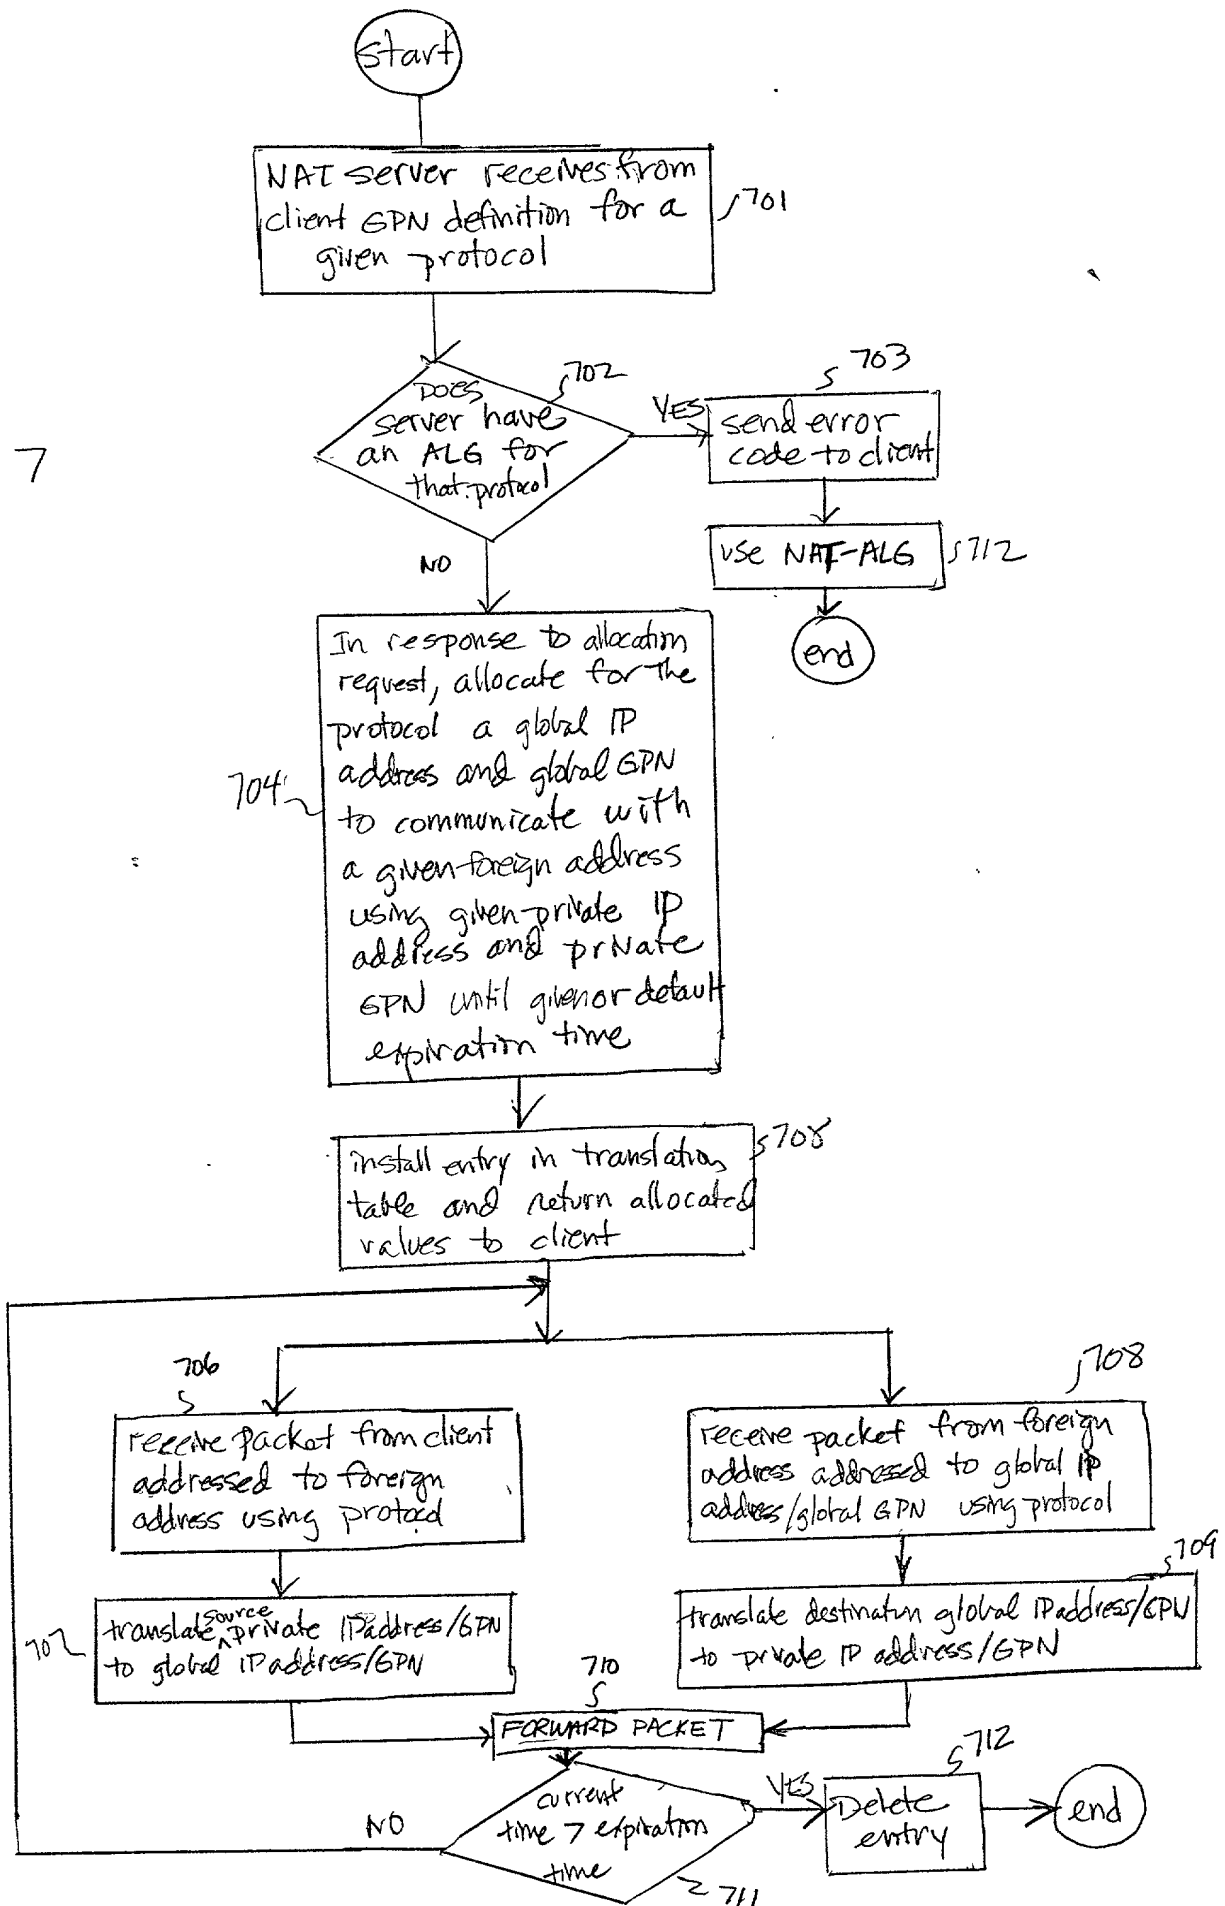 start
NAT server receives from
client GPN definition for a
given protocol
701
702
Does
server have
an ALG for
that protocol
YES
703
send error
code to client
7
NO
use NAT-ALG
712
end
In response to allocation
request, allocate for the
protocol a global IP
address and global GPN
to communicate with
a given foreign address
using given private IP
address and private
GPN until given or default
expiration time
704
705
install entry in translation
table and return allocated
values to client
706
receive packet from client
addressed to foreign
address using protocol
708
receive packet from foreign
address addressed to global IP
address/global GPN using protocol
707
translate source private IP address/GPN
to global IP address/GPN
709
translate destination global IP address/GPN
to private IP address/GPN
710
FORWARD PACKET
current
time > expiration
time
711
NO
YES
712
Delete
entry
end